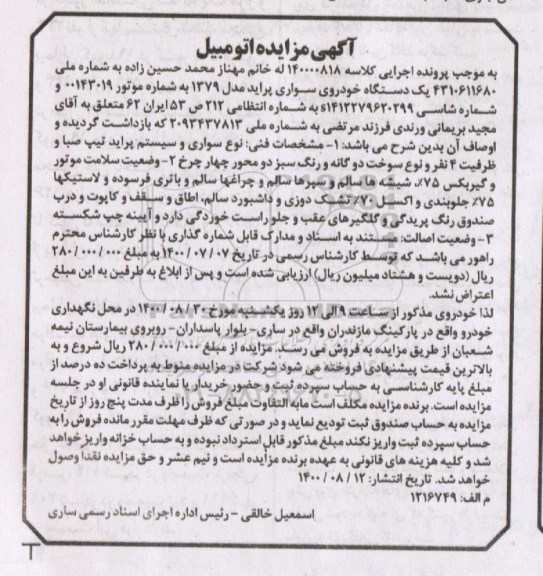 آگهی مزایده اتومبیل
به موجب پرونده اجرایی کلاسه ۱۴۰۰۰۰۸۱۸ له خانم مهناز محمد حسین زاده به شماره ملی
۴۳۱۰۶۱۱۶۸۰ یک دستگاه خودروی سواری پراید مدل ۱۳۷۹ به شماره موتور ۰۰۱۴۳۰۱۹ و
شماره شاسی s۱۴۱۲۲۷۹۶۲۰۲۹۹ به شماره انتظامی ۲۱۲ ص ۵۳ ایران ۶۲ متعلق به آقای
مجید بریمانی ورندی فرزند مرتضی به شماره ملی ۲۰۹۳۴۳۷۸۱۳ که بازداشت گردیده و
اوصاف آن بدین شرح می باشد: ۱- مشخصات فنی: نوع سواری و سیستم پراید تیپ صبا و
ظرفیت ۴ نفر و نوع سوخت دو گانه و رنگ سبز دو محور چهار چرخ ۲- وضعیت سلامت موتور
و گیربکس ۷۵٪، شیشه ها سالم و سپرها سالم و چراغها سالم و باتری فرسوده و لاستیکها
۷۵٪ جلوبندی و اکسل ۷۰٪ تشک دوزی و داشبورد سالم، اطاق و سقف و کاپوت و درب
صندوق رنگ پریدگی و گلگیرهای عقب و جلو راست خوردگی دارد و آیینه چپ شکسته
۳- وضعیت اصالت: مستند به اسناد و مدارک قابل شماره گذاری با نظر کارشناس محترم
راهور می باشد که توسط کارشناس رسمی در تاریخ ۱۴۰۰/۰۷/۰۷ به مبلغ ۲۸۰/۰۰۰/۰۰۰
ریال (دویست و هشتاد میلیون ریال) ارزیابی شده است و پس از ابلاغ به طرفین به این مبلغ
اعتراض نشد.
لذا خودروی مذکور از ساعت ۹ الی ۱۲ روز یکشنبه مورخ ۱۴۰۰/۰۸/۳۰ در محل نگهداری
خودرو واقع در پارکینگ مازندران واقع در ساری- بلوار پاسداران- روبروی بیمارستان نیمه
شعبان از طریق مزایده به فروش می رسد. مزایده از مبلغ ۲۸۰/۰۰۰/۰۰۰ ریال شروع و به
بالاترین قیمت پیشنهادی فروخته می شود شرکت در مزایده منوط به پرداخت ده درصد از
مبلغ پایه کارشناسی به حساب سپرده ثبت و حضور خریدار یا نماینده قانونی او در جلسه
مزایده است. برنده مزایده مکلف است مابه التفاوت مبلغ فروش را ظرف مدت پنج روز از تاریخ
مزایده به حساب صندوق ثبت تودیع نماید و در صورتی که ظرف مهلت مقرر مانده فروش را به
حساب سپرده ثبت واریز نکند مبلغ مذکور قابل استرداد نبوده و به حساب خزانه واریز خواهد
شد و کلیه هزینه های قانونی به عهده برنده مزایده است و نیم عشر و حق مزایده نقدا وصول
خواهد شد. تاریخ انتشار: ۱۴۰۰/۰۸/۱۲
م الف: ۱۲۱۶۷۴۹
اسمعیل خالقی - رئیس اداره اجرای اسناد رسمی ساری